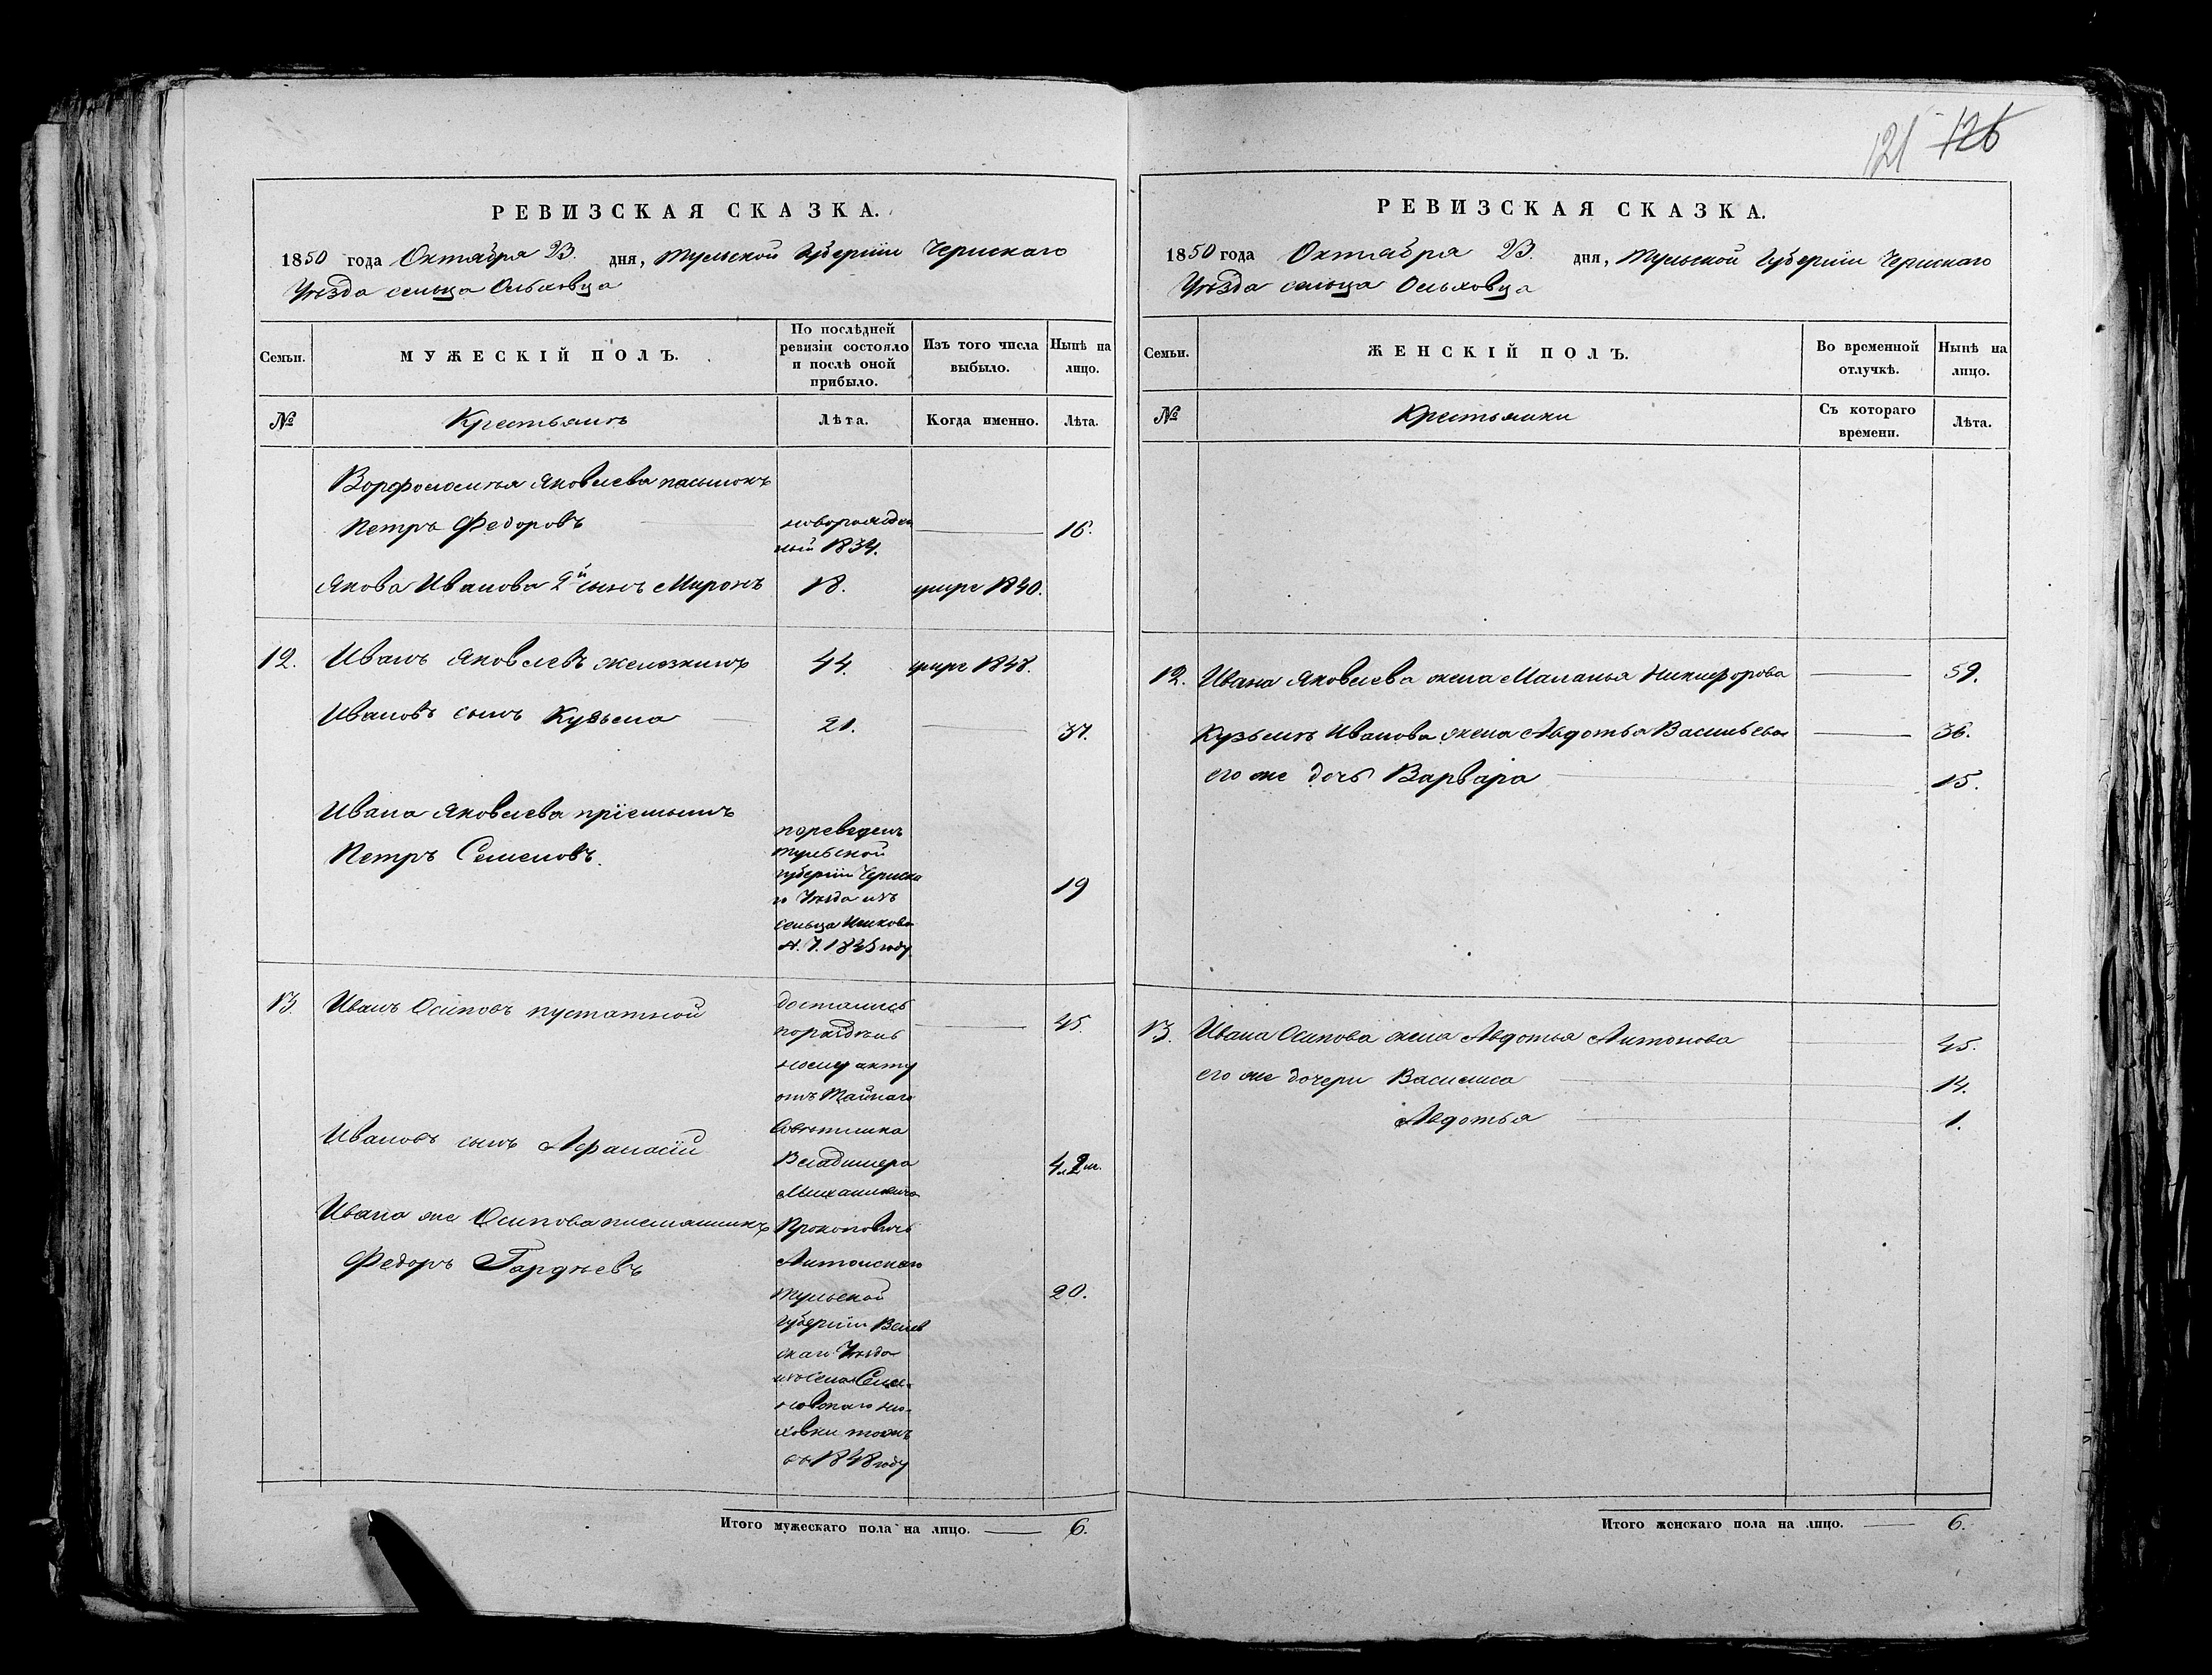 121 126
РЕВИЗСКАЯ СКАЗКА.
1850 года Октября 23. дня, Тульской Губернiи Чернскаго
Уѣзда сельца Ольховца
Семьи.
МУЖЕСКIЙ ПОЛЪ.
По послѣдней ревизiи состояло и послѣ оной прибыло.
Изъ того числа выбыло.
Нынѣ на лицо.
№
Крестьянъ
Лѣта.
Когда именно.
Лѣта.
Ворфоломѣя Яковлева пасынокъ
Петръ Федоровъ
новорожден
ный 1834.
16.
Якова Иванова 2й сынъ Миронъ 18. умре 1840.
12. Иванъ Яковлевъ 44. умре 1848.
Ивановъ сынъ Кузьма 21. 37.
Ивана Яковлева прiемышъ
Петръ Семеновъ.
переведенъ
Тульской
губернiи Чернска
го Уѣзда изъ
сельца
1845 году
19
13. Иванъ Осиповъ 45.
Ивановъ сынъ Афанасiй
Ивана же Осипова
Федоръ Гардѣевъ 20.
достались
по раздѣль
ному акту
отъ Тайнаго
Совѣтника
Владимера
Михайловича
Прокоповичъ
Антонскаго
Тульской
губернiи Венев
скаго Уѣзда
изъ села
въ 1848 году
Итого мужескаго пола на лицо. 6.
РЕВИЗСКАЯ СКАЗКА.
1850 года Октября 23. дня, Тульской Губернiи Чернскаго
Уѣзда сельца Ольховца
Семьи.
ЖЕНСКIЙ ПОЛЪ.
Во временной отлучкѣ.
Нынѣ на лицо.
№
Крестьянки
Съ котораго времени.
Лѣта.
12. Ивана Яковлева жена Маланья Никифорова 59.
Кузьмы Иванова жена Авдотья Васильева 36.
его же дочь Варвара 15.
13. Ивана Осипова жена Авдотья Антонова 45.
его же дочери Василиса 14.
Авдотья 1.
Итого женскаго пола на лицо. 6.